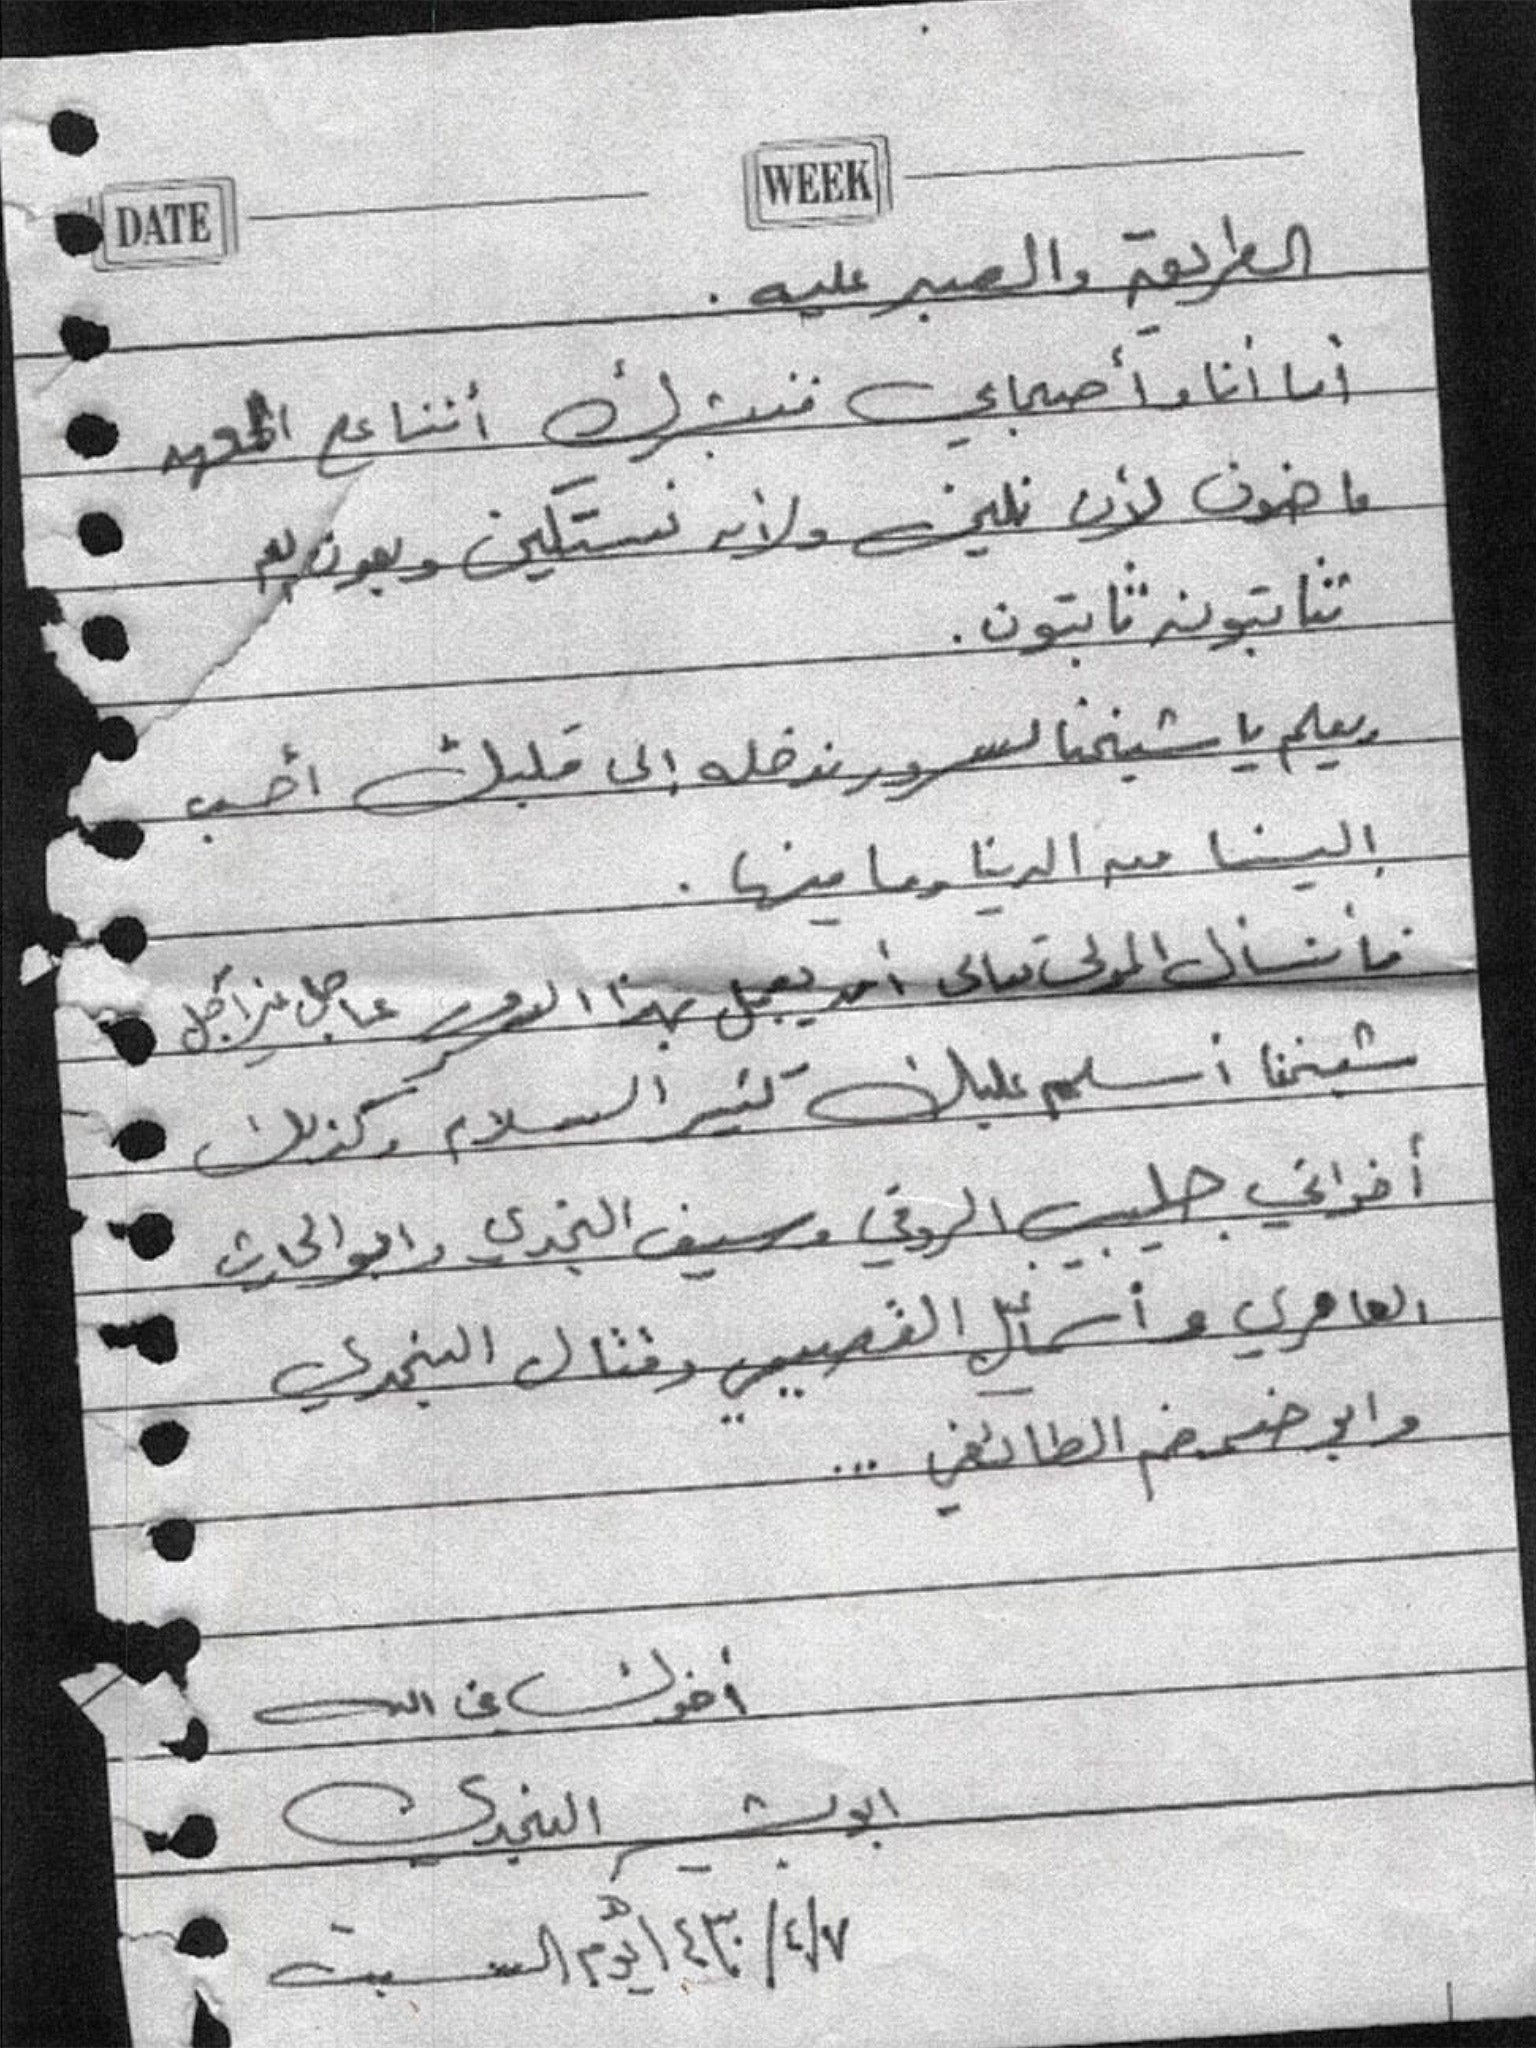 DATE WEEK
الطريقة والصبر عليه .
أما أنا وأصحابي فنبشرك أننا على العهد
ماضون لأن نلين ولان نستكين وبعون
ثابتون ثابتون .
ويعلم يا شيخنا لسرور ندخله إلى قلبك أحب
إلينا من الدنيا وما فيها .
فأنسأل المولى تعالى أن يعجل بهذا عاجل غير آجل
شيخنا أسلم عليك كثير السلام وكذلك
أخواني جليبيب الروقي وسيف النجدي وابو الحارث
العامري و القصيمي وقتال النجدي
وابو الطائفي ...
أخوك في الله
ابو بشير النجدي
٤/٧/ ١٤٣٠هـ يوم السبت